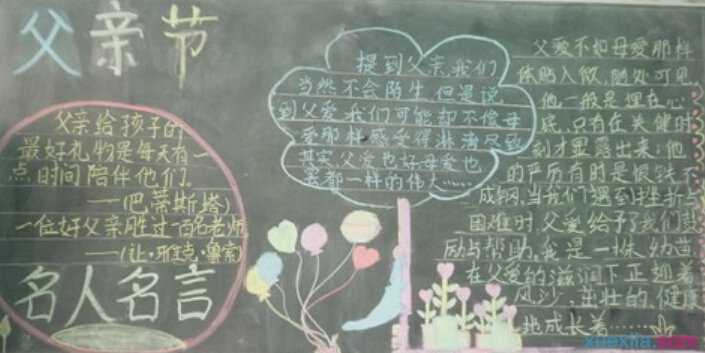 父亲节
父亲给孩子的
最好礼物是每天有一
点时间陪伴他们。
——(巴蒂斯塔)
一位好父亲胜过一百名老师
——(让·雅克·鲁索)
名人名言
提到父亲,我们
当然不会陌生,但是说
到父爱我们可能却不像母
爱那样感受得淋漓尽致
其实,父爱也好母爱也
罢都一样的伟大……
父爱不如母爱那样
体贴入微,随处可见。
他一般是埋在心
底,只有在关键时
刻才显露出来;他
的严厉有时是恨铁不
成钢,当我们遇到挫折与
困难时父爱给予了我们鼓
励与帮助,我是一株幼苗
在父爱的滋润下正迎着
风沙,茁壮的,健康
地成长着……